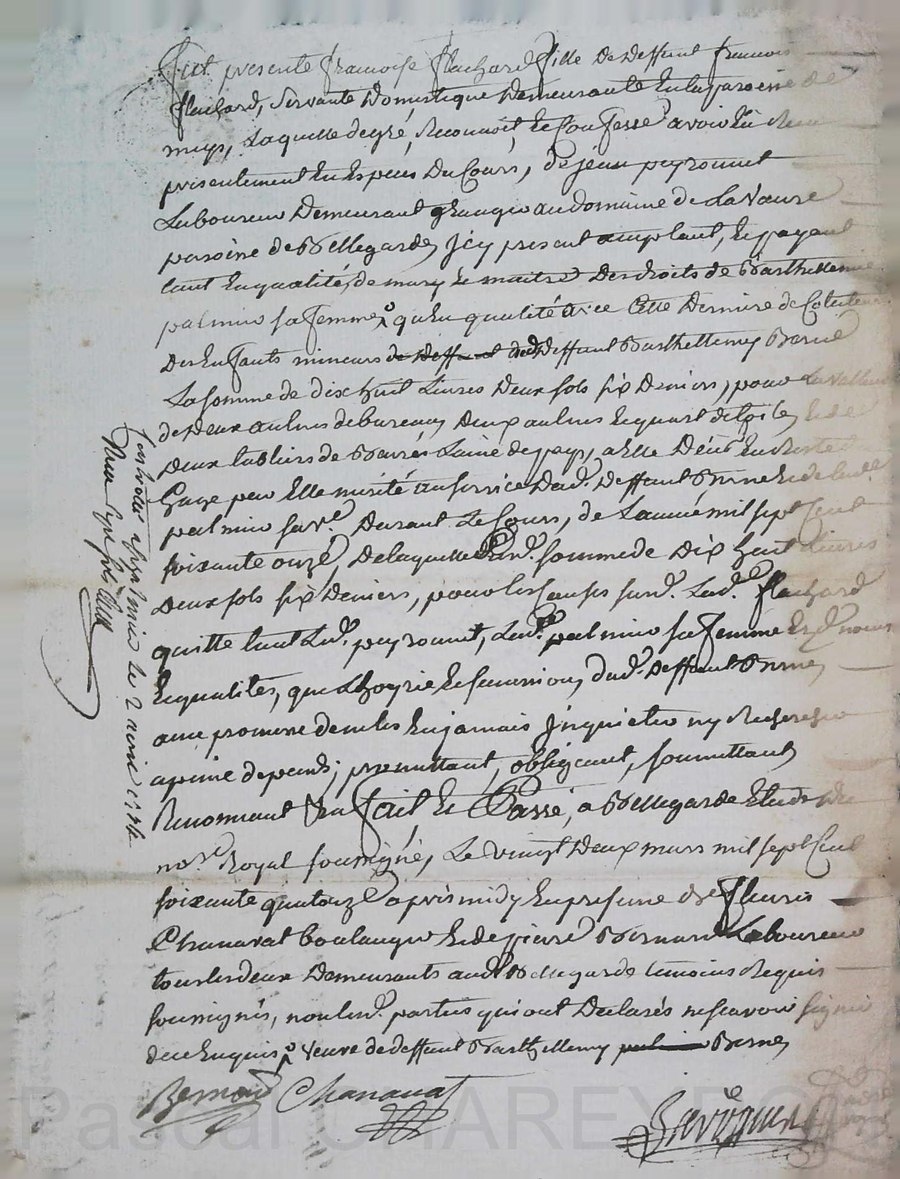 fut presente françoise flachard fille de deffunt francois
flachard, servante domestique demeurante en la paroisse de
mays, laquelle de gré, reconnoit et confesse avoir eu
presentement en especes du cours, de jean peyronnet
laboureur demeurant granger au domaine de la Vaure
paroisse de Bellegarde, icy present acceptant, et payant
tant en qualité, de mary et maitre des droits de Barthellemie
palmier sa femme, qu'en qualité avec cette derniere de Cotuteurs
des enfants mineurs de deffunt dud. deffunt Barthellemy Berne
La somme de dix huit livres deux sols six deniers, pour la valleur
de deux aulnes de bureau, deux aulnes et quart de toile, et de
deux tabliers de Barré Laine de pays, a elle deub en reste
Gage par elle merité au service dud. deffunt Berne et de lad.
palmier sa ve. durant le cours, de l'année mil sept Cent
soixante onze, de laquelle susd. somme de dix huit livres
deux sols six deniers, pour les causes susd. lad. flachard
quitte tant led. peyronnet, lad. palmier sa femme esd. noms
et qualites, que l'hoyrie et succession, dud. deffunt Berne,
avec promesse de ne les en jamais inquieter ny rechercher
a peine de penls; promettant, obligeant, soumettant
Renonçant &ca fait et Passé, a Bellegarde etude du
no.re Royal soussigné, le vingt deux mars mil sept Cent
soixante quatorze apres midy en presence de fleuris
Chanavat boulanger et de pierre Bernard Laboureur
tous les deux demeurants aud. Bellegarde temoins requis
soussignés, non lesd. parties qui ont declarés ne scavoir signer
de ce enquis, veuve de deffunt Barthellemy Berne,
Bernard Chanavat
le 2 avril 1774
Pascal CHAREYRON